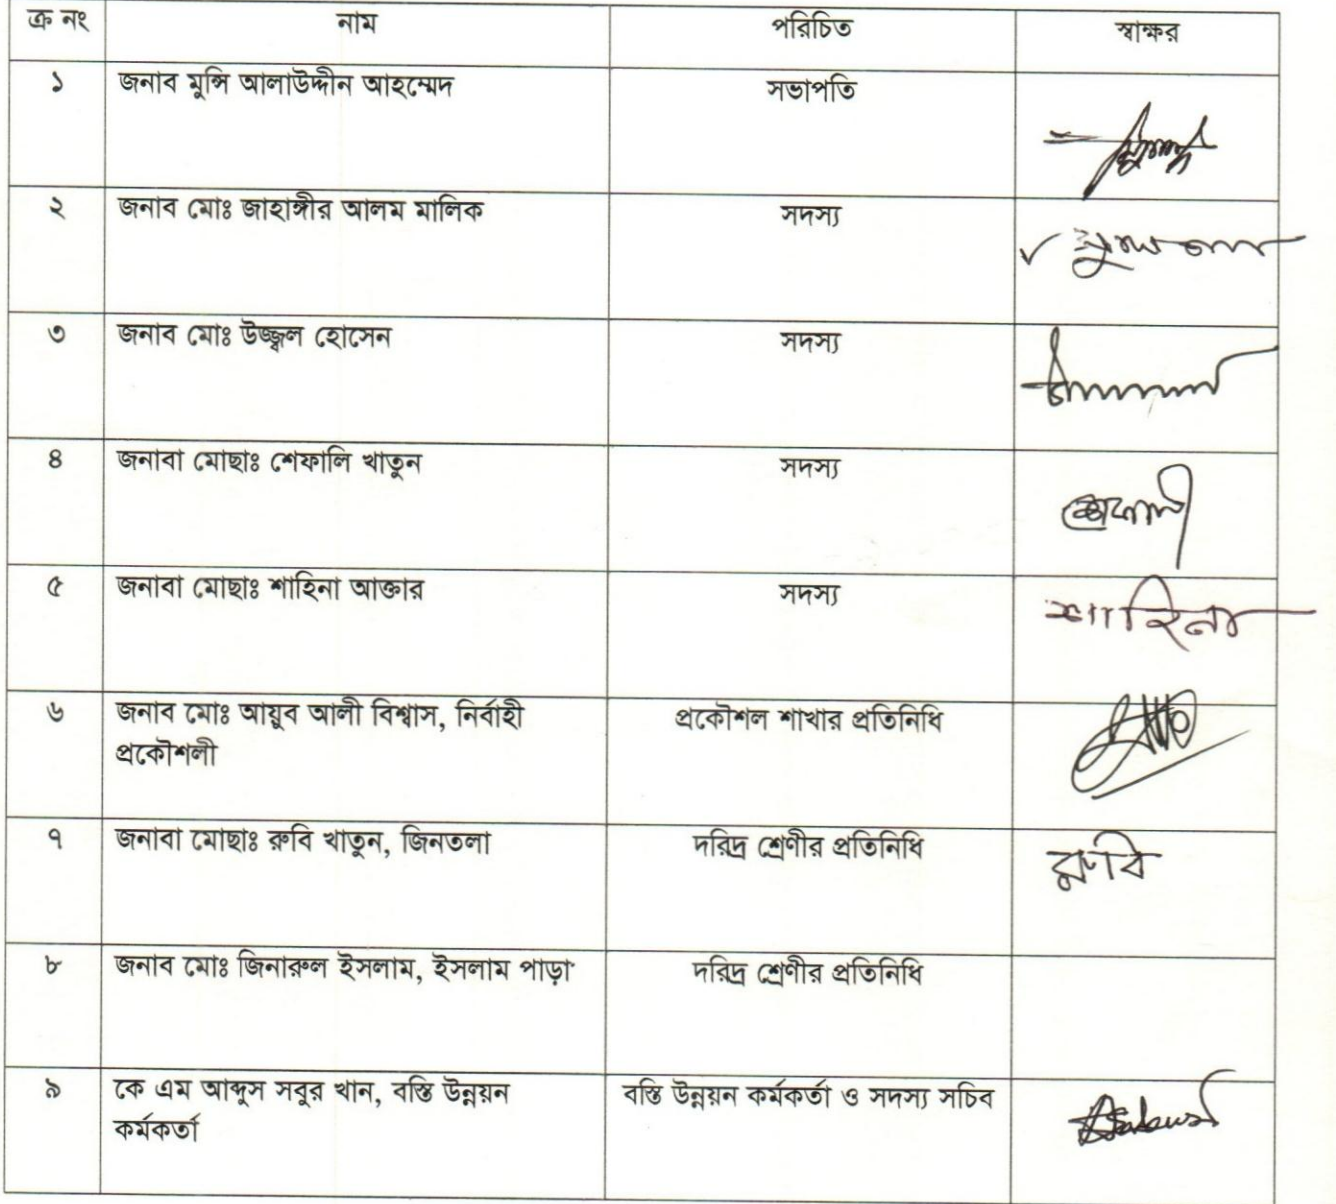 ক্র নং নাম পরিচিতি স্বাক্ষর
১ জনাব মুন্সি আলাউদ্দীন আহম্মেদ সভাপতি
২ জনাব মোঃ জাহাঙ্গীর আলম মালিক সদস্য
৩ জনাব মোঃ উজ্জ্বল হোসেন সদস্য
৪ জনাবা মোছাঃ শেফালি খাতুন সদস্য শেফালী
৫ জনাবা মোছাঃ শাহিনা আক্তার সদস্য শাহিনা
৬ জনাব মোঃ আয়ুব আলী বিশ্বাস, নির্বাহী প্রকৌশল শাখার প্রতিনিধি
প্রকৌশলী
৭ জনাবা মোছাঃ রুবি খাতুন, জিনতলা দরিদ্র শ্রেণীর প্রতিনিধি রুবি
৮ জনাব মোঃ জিনারুল ইসলাম, ইসলাম পাড়া দরিদ্র শ্রেণীর প্রতিনিধি
৯ কে এম আব্দুস সবুর খান, বস্তি উন্নয়ন বস্তি উন্নয়ন কর্মকর্তা ও সদস্য সচিব
কর্মকর্তা